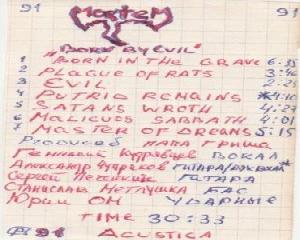 91 MORTEM 91
"BORN BY EVIL"
1 "BORN IN THE GRAVE 6:35
2 PLAGUE OF RATS 3:46
3 EVIL 2:25
4 PUTRID REMAINS 4:10
5 SATANS WROTH 4:21
6 MALICUS SABBATH 4:01
7 MASTER OF DREAMS 5:15
Produced ПАПА ГРИША
Геннадий ВОКАЛ
Александр ГИТАРА/ВОКАЛ
Сергей ГИТАРА
Станислав БАС
Юрий ОН УДАРНЫЕ
TIME 30:33
91 ACUSTICA